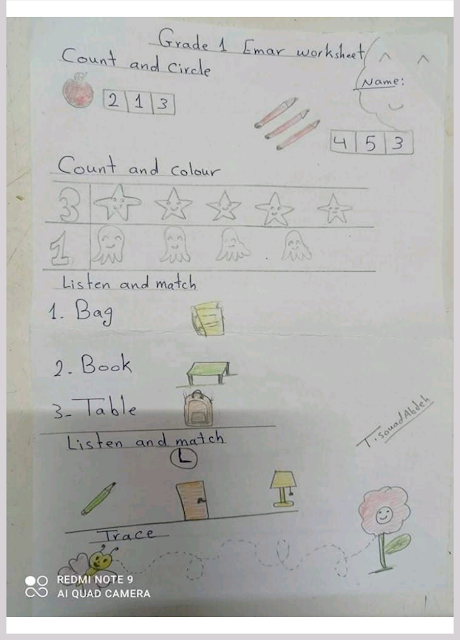 Grade 1 Emar worksheet
Count and circle
Name:
2 1 3
4 5 3
Count and colour
3
1
Listen and match
1. Bag
2. Book
3- Table
Listen and match
L
Trace
T. souad Abdeh
REDMI NOTE 9
AI QUAD CAMERA